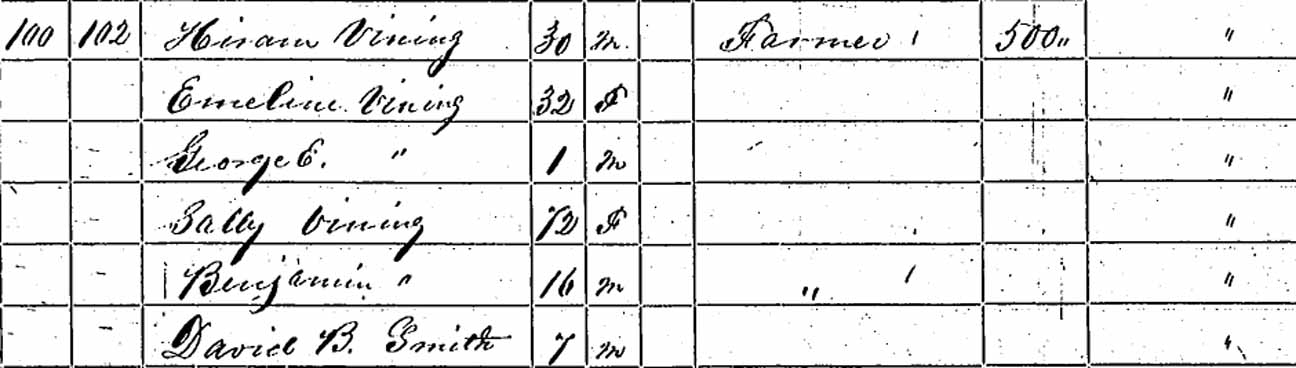 100 102 Hiram Vining 30 m Farmer 500 "
Emeline Vining 32 F "
George E. " 1 m "
Sally Vining 72 F "
Benjamin " 16 m " "
David B. Smith 7 m "